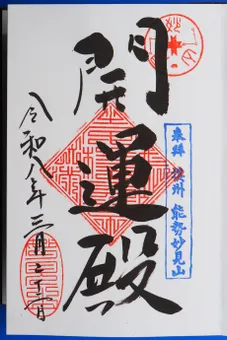 奉拝 摂州 能勢妙見山
開運殿
令和八年三月二十一日